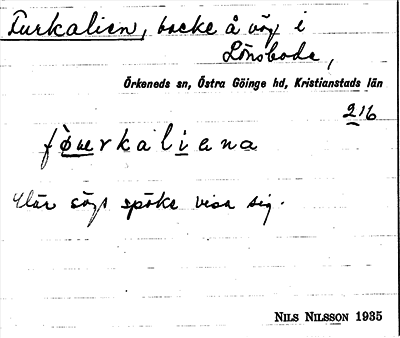 Turkalien, backe å väg i
Lönsboda,
Örkeneds sn, Östra Göinge hd, Kristianstads län
216
Här sägs spöke visa sig.
NILS NILSSON 1935